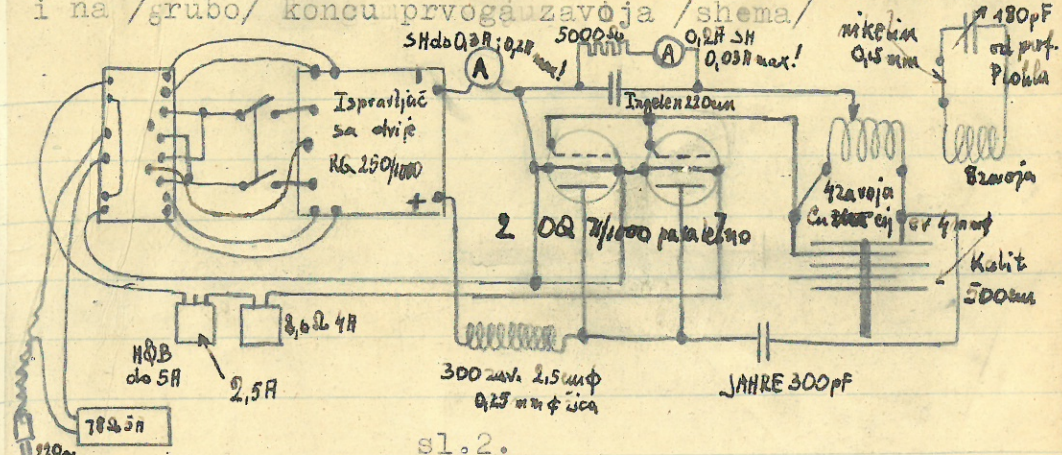 i na /grubo/ koncu prvoga zavoja /shema/
SH do 0,3A; 0,2A
max!
5000Ω
0,2A SH
0,03A max!
A
A
nikelin
0,5 mm
180pF
od prof.
Plohla
Ispravljač
sa dvije
RG 250/1000
-
+
Ingelen 220cm
8 zavoja
4 zavoja
Cu
2 OQ 71/1000 paralelno
Kalit
500cm
H&B
do 5A
2,5A
2,6Ω 4A
300 zav. 2,5cmϕ
0,25 mm ϕ žica
JAHRE 300pF
78Ω 5A
220
sl.2.